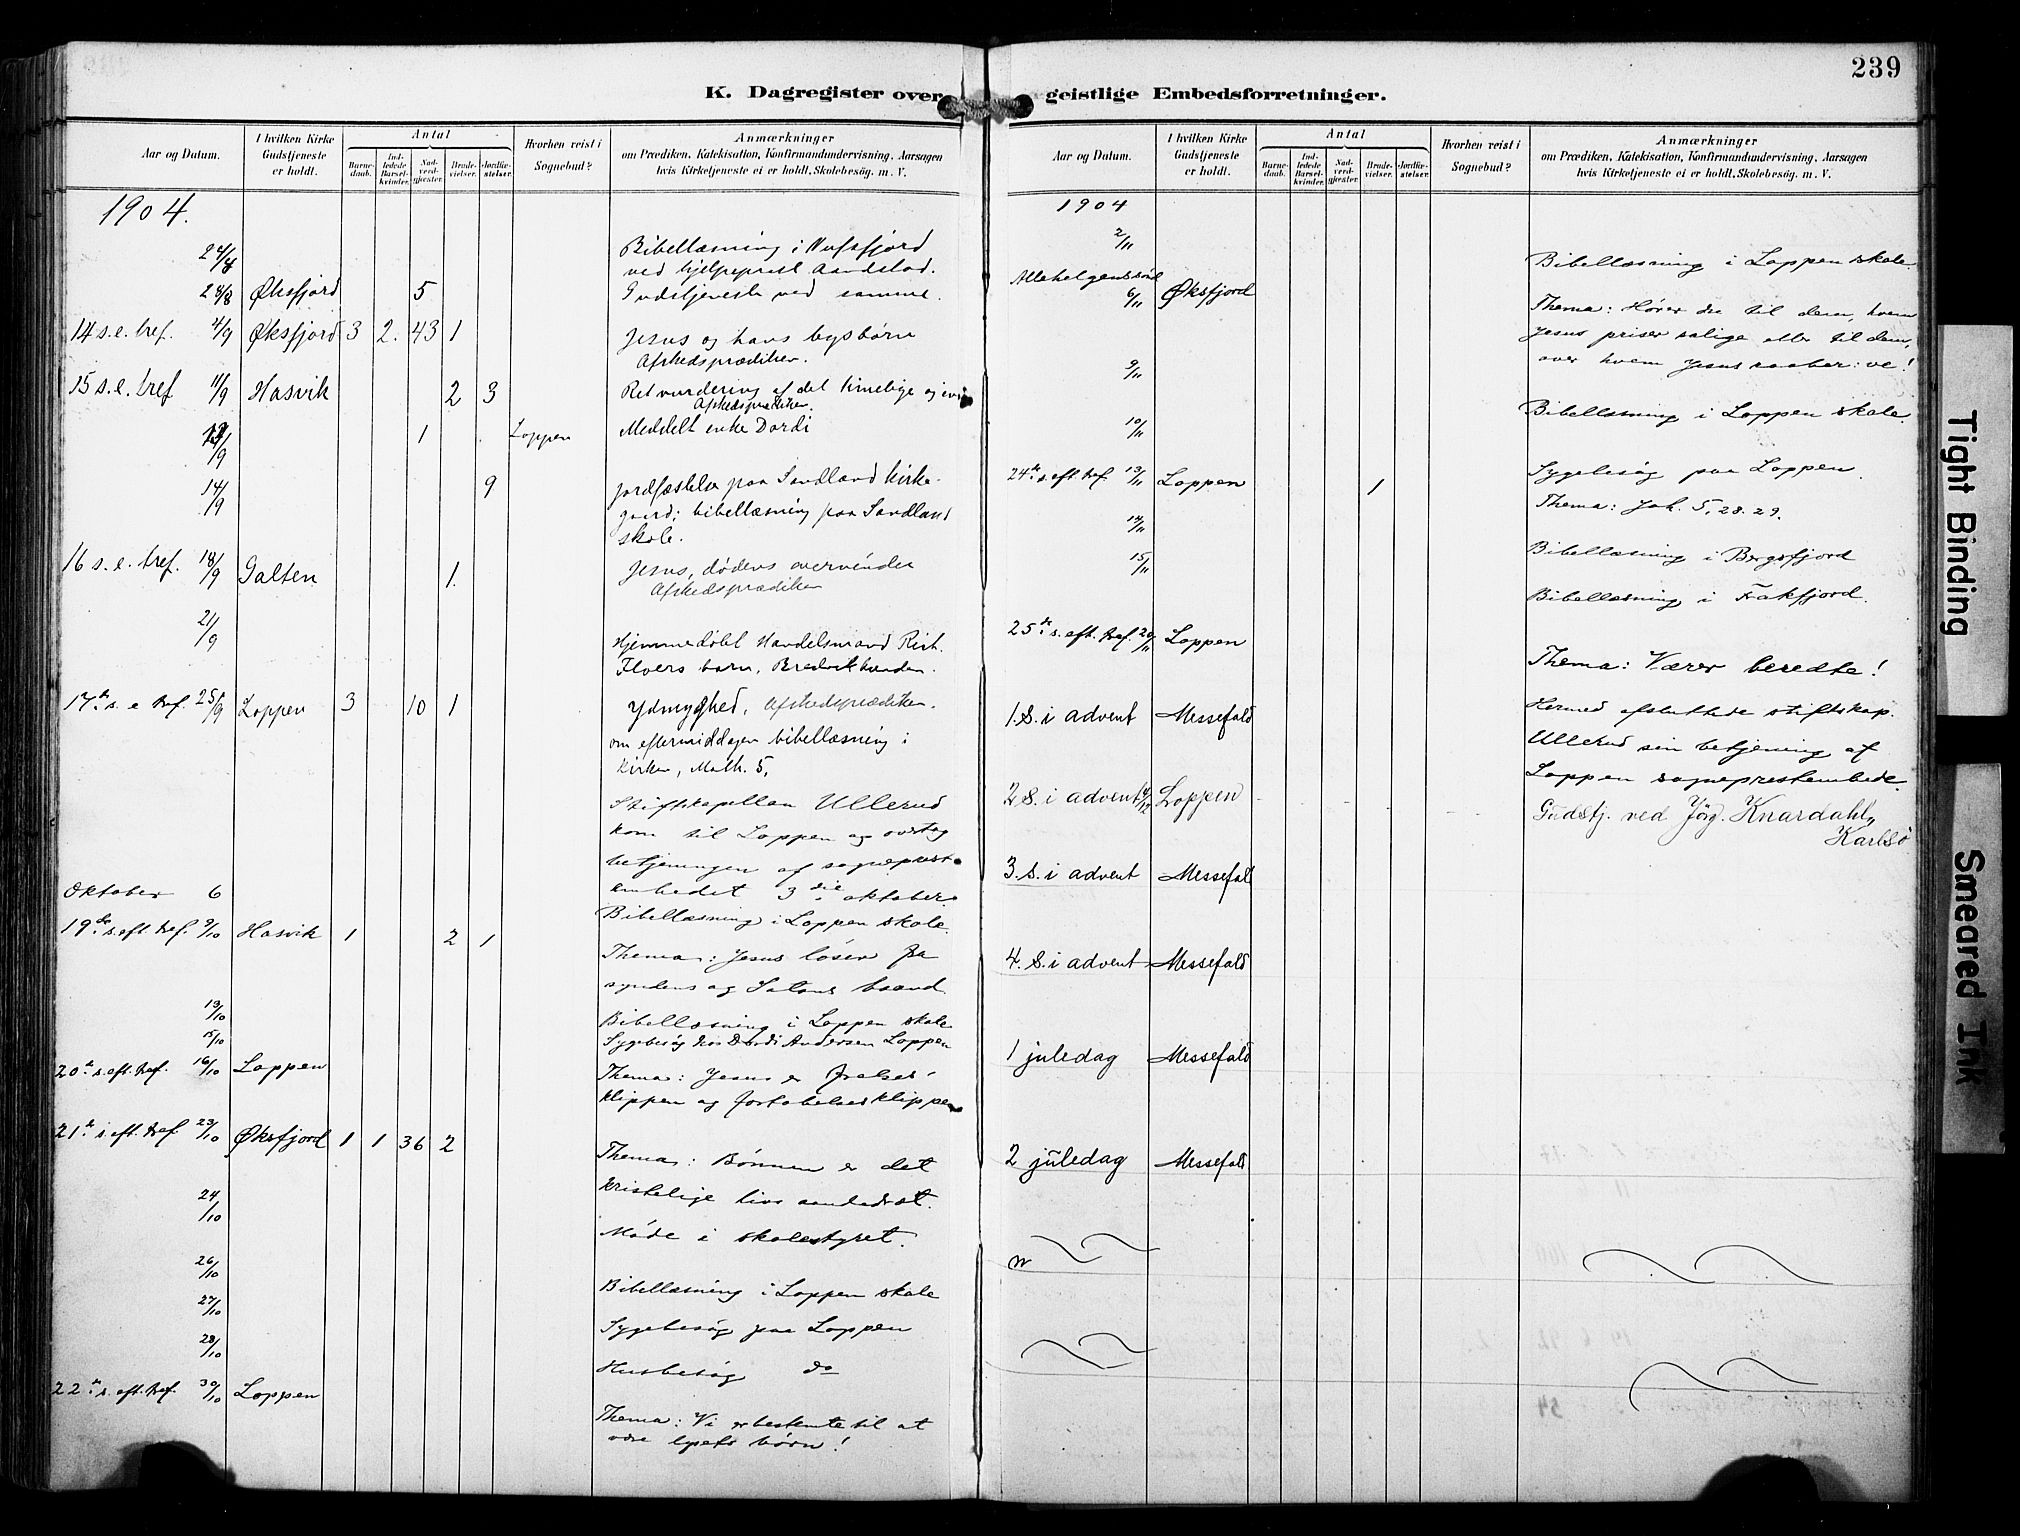 239
K. Dagregister over geistlige Embedsforretninger.
Aar og Datum.
I hvilken Kirke Gudstjeneste er holdt.
Antal
Barnedaab.
Indledede Barselkvinder.
Nadverdgjæster.
Brudevielser.
Jordfæstelser.
Hvorhen reist i Sognebud?
Anmærkninger
om Prædiken, Katekisation, Konfirmandundervisning, Aarsagen
hvis Kirketjeneste ei er holdt, Skolebesøg. m. V.
1904.
24/8 Bibellæsning i Nufsfjord
ved hjelpeprest Aandstad.
28/8 Øksfjord 5 Gudstjeneste ved samme.
14 s. e. tref. 4/9 Øksfjord 3 2. 43 1 Jesus og hans bysbørn
Afskedsprædiken.
15 s. e. tref 11/9 Hasvik 2 3 Ret vurdering af det timelige og
Afskedsprædiken.
/9 1 Loppen Meddelt enke Dordi
14/9 9 Jordfæstelse paa Sandland Kirke-
gaard; bibellæsning paa Sandland
skole.
16 s. e. tref. 18/9 Galten 1. Jesus, dødens overvinder
Afskedsprædiken
21/9 Hjemmedøbt Handelsmand Rich.
Floers barn, Bredvikbunden.
17de s. e tref. 25/9 Loppen 3 10 1 Ydmyghed, Afskedsprædiken.
om eftermiddagen bibellæsning i
Kirken, Math. 5,
Stiftskapellan Ullerud
kom til Loppen og overtog
betjeningen af sogneprest-
embedet 3die oktober.
Oktober 6 Bibellæsning i Loppen skole.
19de s. eft. tref. 9/10 Hasvik 1 2 1 Thema: Jesus løser fra
syndens og Satans baand.
13/10 Bibellæsning i Loppen skole
15/10 Sygebesøg hos Dordi Andersen Loppen
20de s. eft. tref. 16/10 Loppen Thema: Jesus er frelses-
klippen og fortabelsesklippen
21de s. eft. tref 23/10 Øksfjord 1 1 36 2 Thema: Bønnen er det
kristelige livs aandedræt.
24/10 Møde i skolestyret.
26/10 Bibellæsning i Loppen skole
27/10 Sygebesøg paa Loppen
28/10 Husbesøg do
22de s. eft. tref. 30/10 Loppen Thema: Vi er bestemte til at
være lysets børn!
Aar og Datum.
I hvilken Kirke Gudstjeneste er holdt.
Antal
Barnedaab.
Indledede Barselkvinder.
Nadverdgjæster.
Brudevielser.
Jordfæstelser.
Hvorhen reist i Sognebud?
Anmærkninger
om Prædiken, Katekisation, Konfirmandundervisning, Aarsagen
hvis Kirketjeneste ei er holdt, Skolebesøg. m. V.
1904
2/11 Bibellæsning i Loppen skole.
Allehelgenssønd 6/11 Øksfjord Thema: Hører du til dem, hvem
Jesus priser salige eller til dem,
over hvem Jesus raaber: ve!
9/11 Bibellæsning i Loppen skole.
10/11 Sygebesøg paa Loppen.
24de s. eft. tref 13/11 Loppen 1 Thema: Joh. 5, 28. 29.
14/11 Bibellæsning i Bergsfjord
15/11 Bibellæsning i Frakfjord.
25de s. eft. tref. 20/11 Loppen Thema: Værer beredte!
Hermed afsluttede stiftskap.
Ullerud sin betjening af
Loppen sogneprestembede.
1. S. i advent Messefald
2 S. i advent 4/12 Loppen Gudstj. ved Jörg. Knardahl,
Karlsö
3. S. i advent Messefald
4. S. i advent Messefald
1 juledag Messefald
2 juledag Messefald
Tight Binding
Smeared Ink